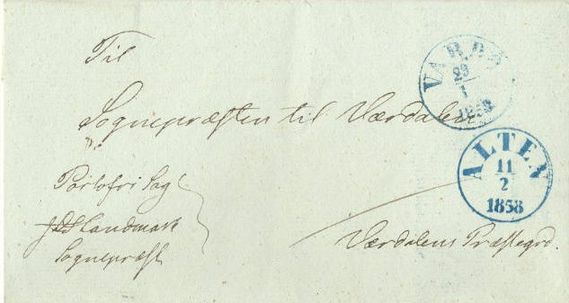 Til
Sognepræsten til Værdalen
Portofri Sag
Landmark
Sognepræst
Værdalens Præstegrd.
VARDÖ
23
1
1858
ALTEN
11
2
1858